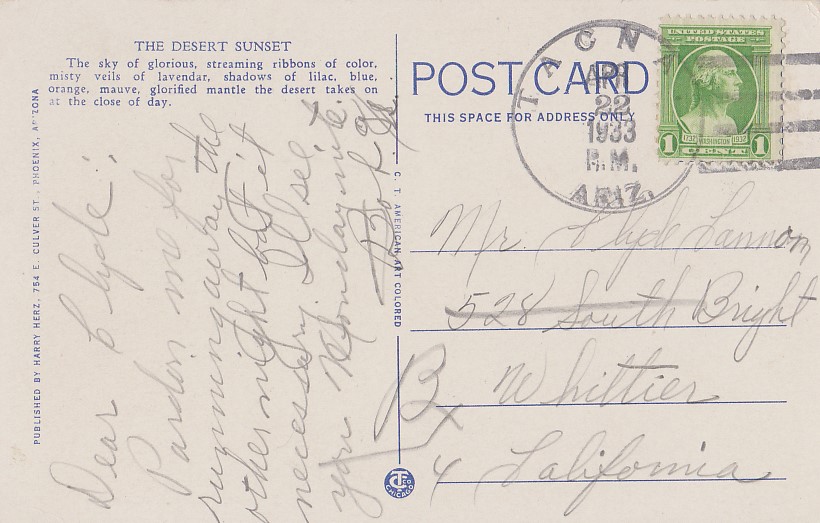 THE DESERT SUNSET
The sky of glorious, streaming ribbons of color,
misty veils of lavendar, shadows of lilac, blue,
orange, mauve, glorified mantle the desert takes on
at the close of day.
PUBLISHED BY HARRY HERZ, 754 E. CULVER ST., PHOENIX, ARIZONA
Dear Clyde:
Pardon me for
running away the
other night but it
necessary. I'll see
you Monday nite.
Bob
C. T. AMERICAN ART COLORED
POST CARD
THIS SPACE FOR ADDRESS ONLY
TACNA
APR
22
1933
P.M.
ARIZ.
UNITED STATES
POSTAGE
1732 WASHINGTON 1932
1 CENT 1
Mr. Clyde Lannom
528 South Bright
Whittier
California
Bx
4
CT CO
CHICAGO